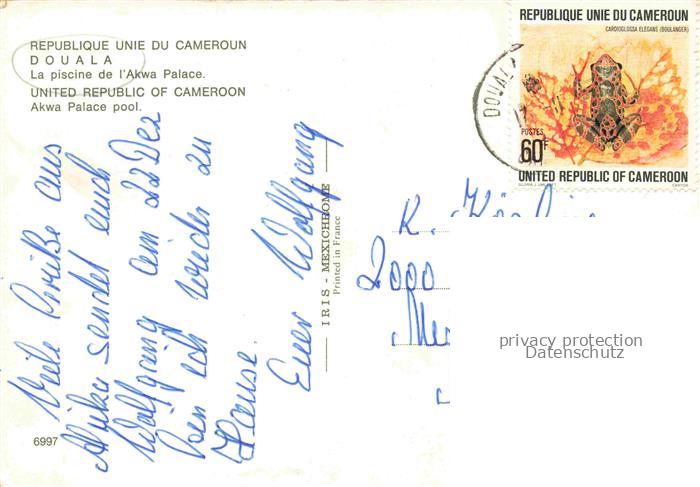 REPUBLIQUE UNIE DU CAMEROUN
DOUALA
La piscine de l'Akwa Palace.
UNITED REPUBLIC OF CAMEROON
Akwa Palace pool.
Viele Grüße aus
Afrika sendet euch
Wolfgang am 22 Dez
bin ich wieder zu
Hause.
Euer Wolfgang
6997
IRIS - MEXICHROME
Printed in France
REPUBLIQUE UNIE DU CAMEROUN
CARDIOGLOSSA ELEGANS (BOULANGER)
DOUALA
POSTES
60F
UNITED REPUBLIC OF CAMEROON
K.
2000
privacy protection
Datenschutz